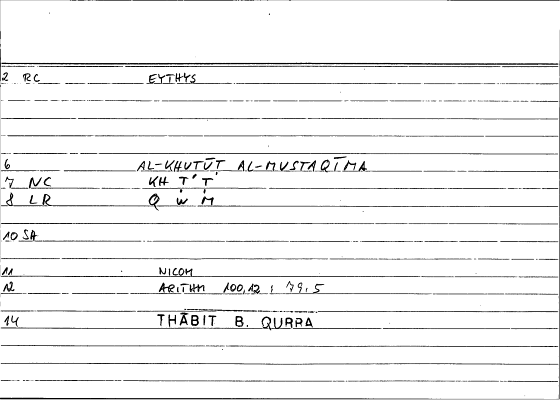 2 RC EYTHYS
6 AL-KHUṬŪṬ AL-MUSTAQĪMA
7 NC KH Ṭ Ṭ
8 LR Q W M
10 SA
11 NICOM
12 ARITHM 100,12 ; 79,5
14 THĀBIT B. QURRA